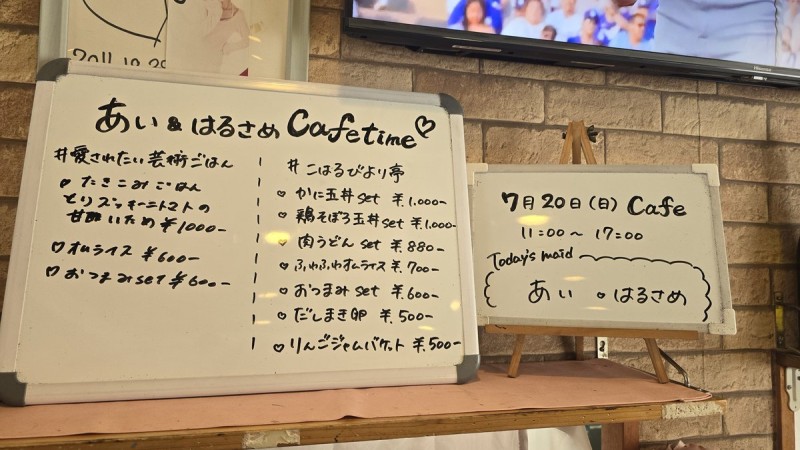 2011.12.29
あい & はるさめ Cafetime♡
#愛されたい芸術ごはん
♡ たきこみごはん
とりズッキーニトマトの
甘酢いため ¥1000-
♡ オムライス ¥600-
♡ おつまみset ¥600-
#こはるびより亭
♡ かに玉丼 set ¥.1,000-
♡ 鶏そぼろ玉丼 set ¥.1,000-
♡ 肉うどん set ¥.880-
♡ ふわふわオムライス ¥.700-
♡ おつまみ set ¥.600-
♡ だしまき卵 ¥.500-
♡ りんごジャムバケット ¥.500-
7月20日(日) Cafe
11:00～17:00
Today's maid
あい ・はるさめ
Hisense